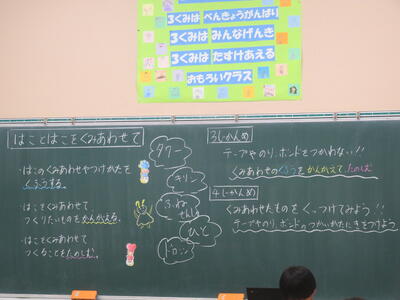 3くみは べんきょうがんばり
3くみは みんなげんき
3くみは たすけあえる
おもろいクラス
はことはこをくみあわせて
・はこのくみあわせやつけかたを
くふうする。
・はこをくみあわせて
つくりたいものをかんがえる。
・はこをくみあわせて
つくることをたのしむ。
タワー
キリン
ふね
せんし
ひと
ドローン
3じかんめ
テープやのり、ボンドをつかわない!!
はこのくみあわせのくふうをかんがえて、たのしむ
4じかんめ
くみあわせたものを くっつけてみよう!!
テープやのり、ボンドのつかいかたにきをつけよう